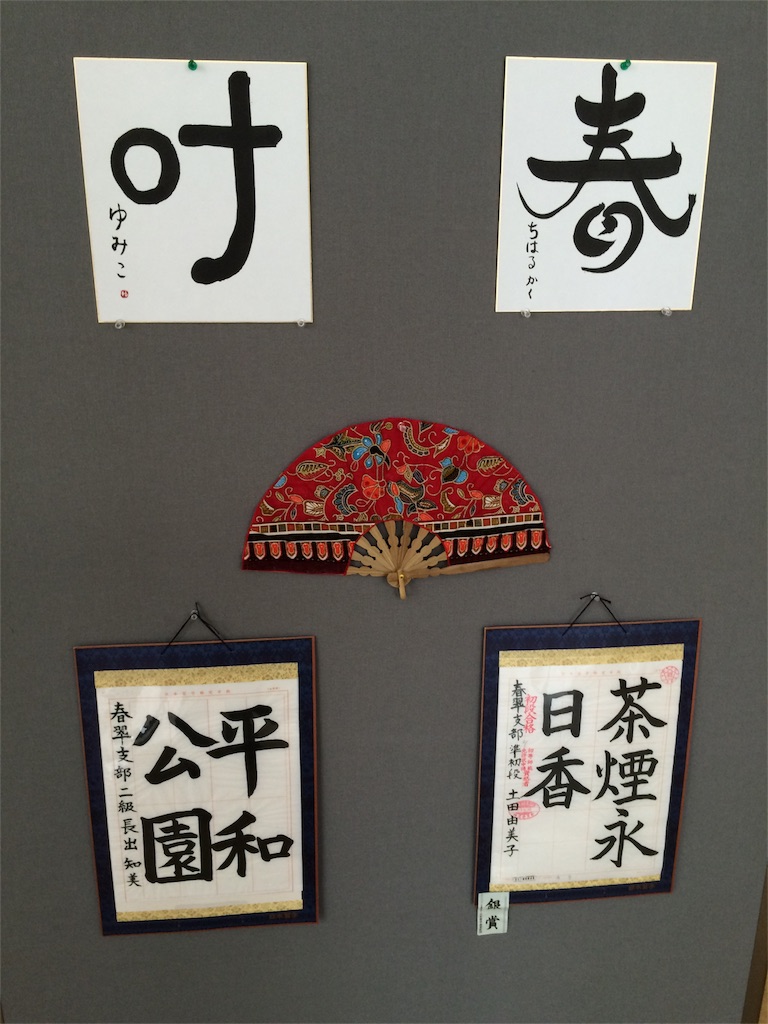 叶
ゆみこ
春
ちはるかく
平和
公園
春翠支部二級長出知美
茶煙永
日香
初段合格
春翠支部準初段土田由美子
銀賞